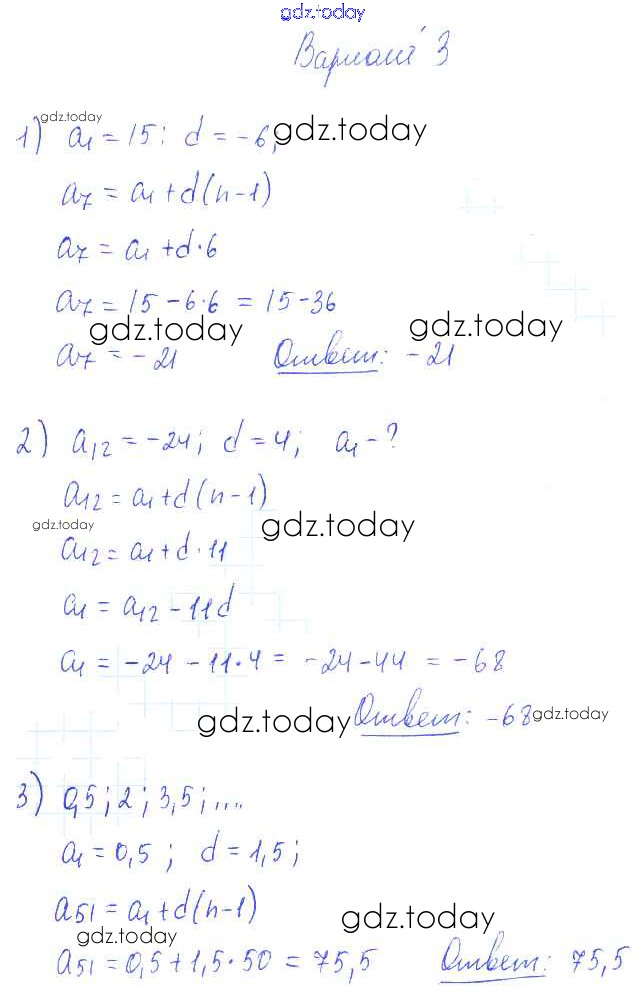 gdz.today
Вариант 3
gdz.today
1) a₁ = 15; d = -6; gdz.today
a₇ = a₁ + d(n-1)
a₇ = a₁ + d·6
a₇ = 15 - 6·6 = 15 - 36
gdz.today gdz.today
a₇ = -21 Ответ: -21
2) a₁₂ = -24; d = 4; a₁ - ?
a₁₂ = a₁ + d(n-1)
gdz.today gdz.today
a₁₂ = a₁ + d·11
a₁ = a₁₂ - 11d
a₁ = -24 - 11·4 = -24 - 44 = -68
gdz.today Ответ: -68 gdz.today
3) 0,5; 2; 3,5; ....
a₁ = 0,5; d = 1,5;
a₅₁ = a₁ + d(n-1)
gdz.today gdz.today
a₅₁ = 0,5 + 1,5·50 = 75,5 Ответ: 75,5